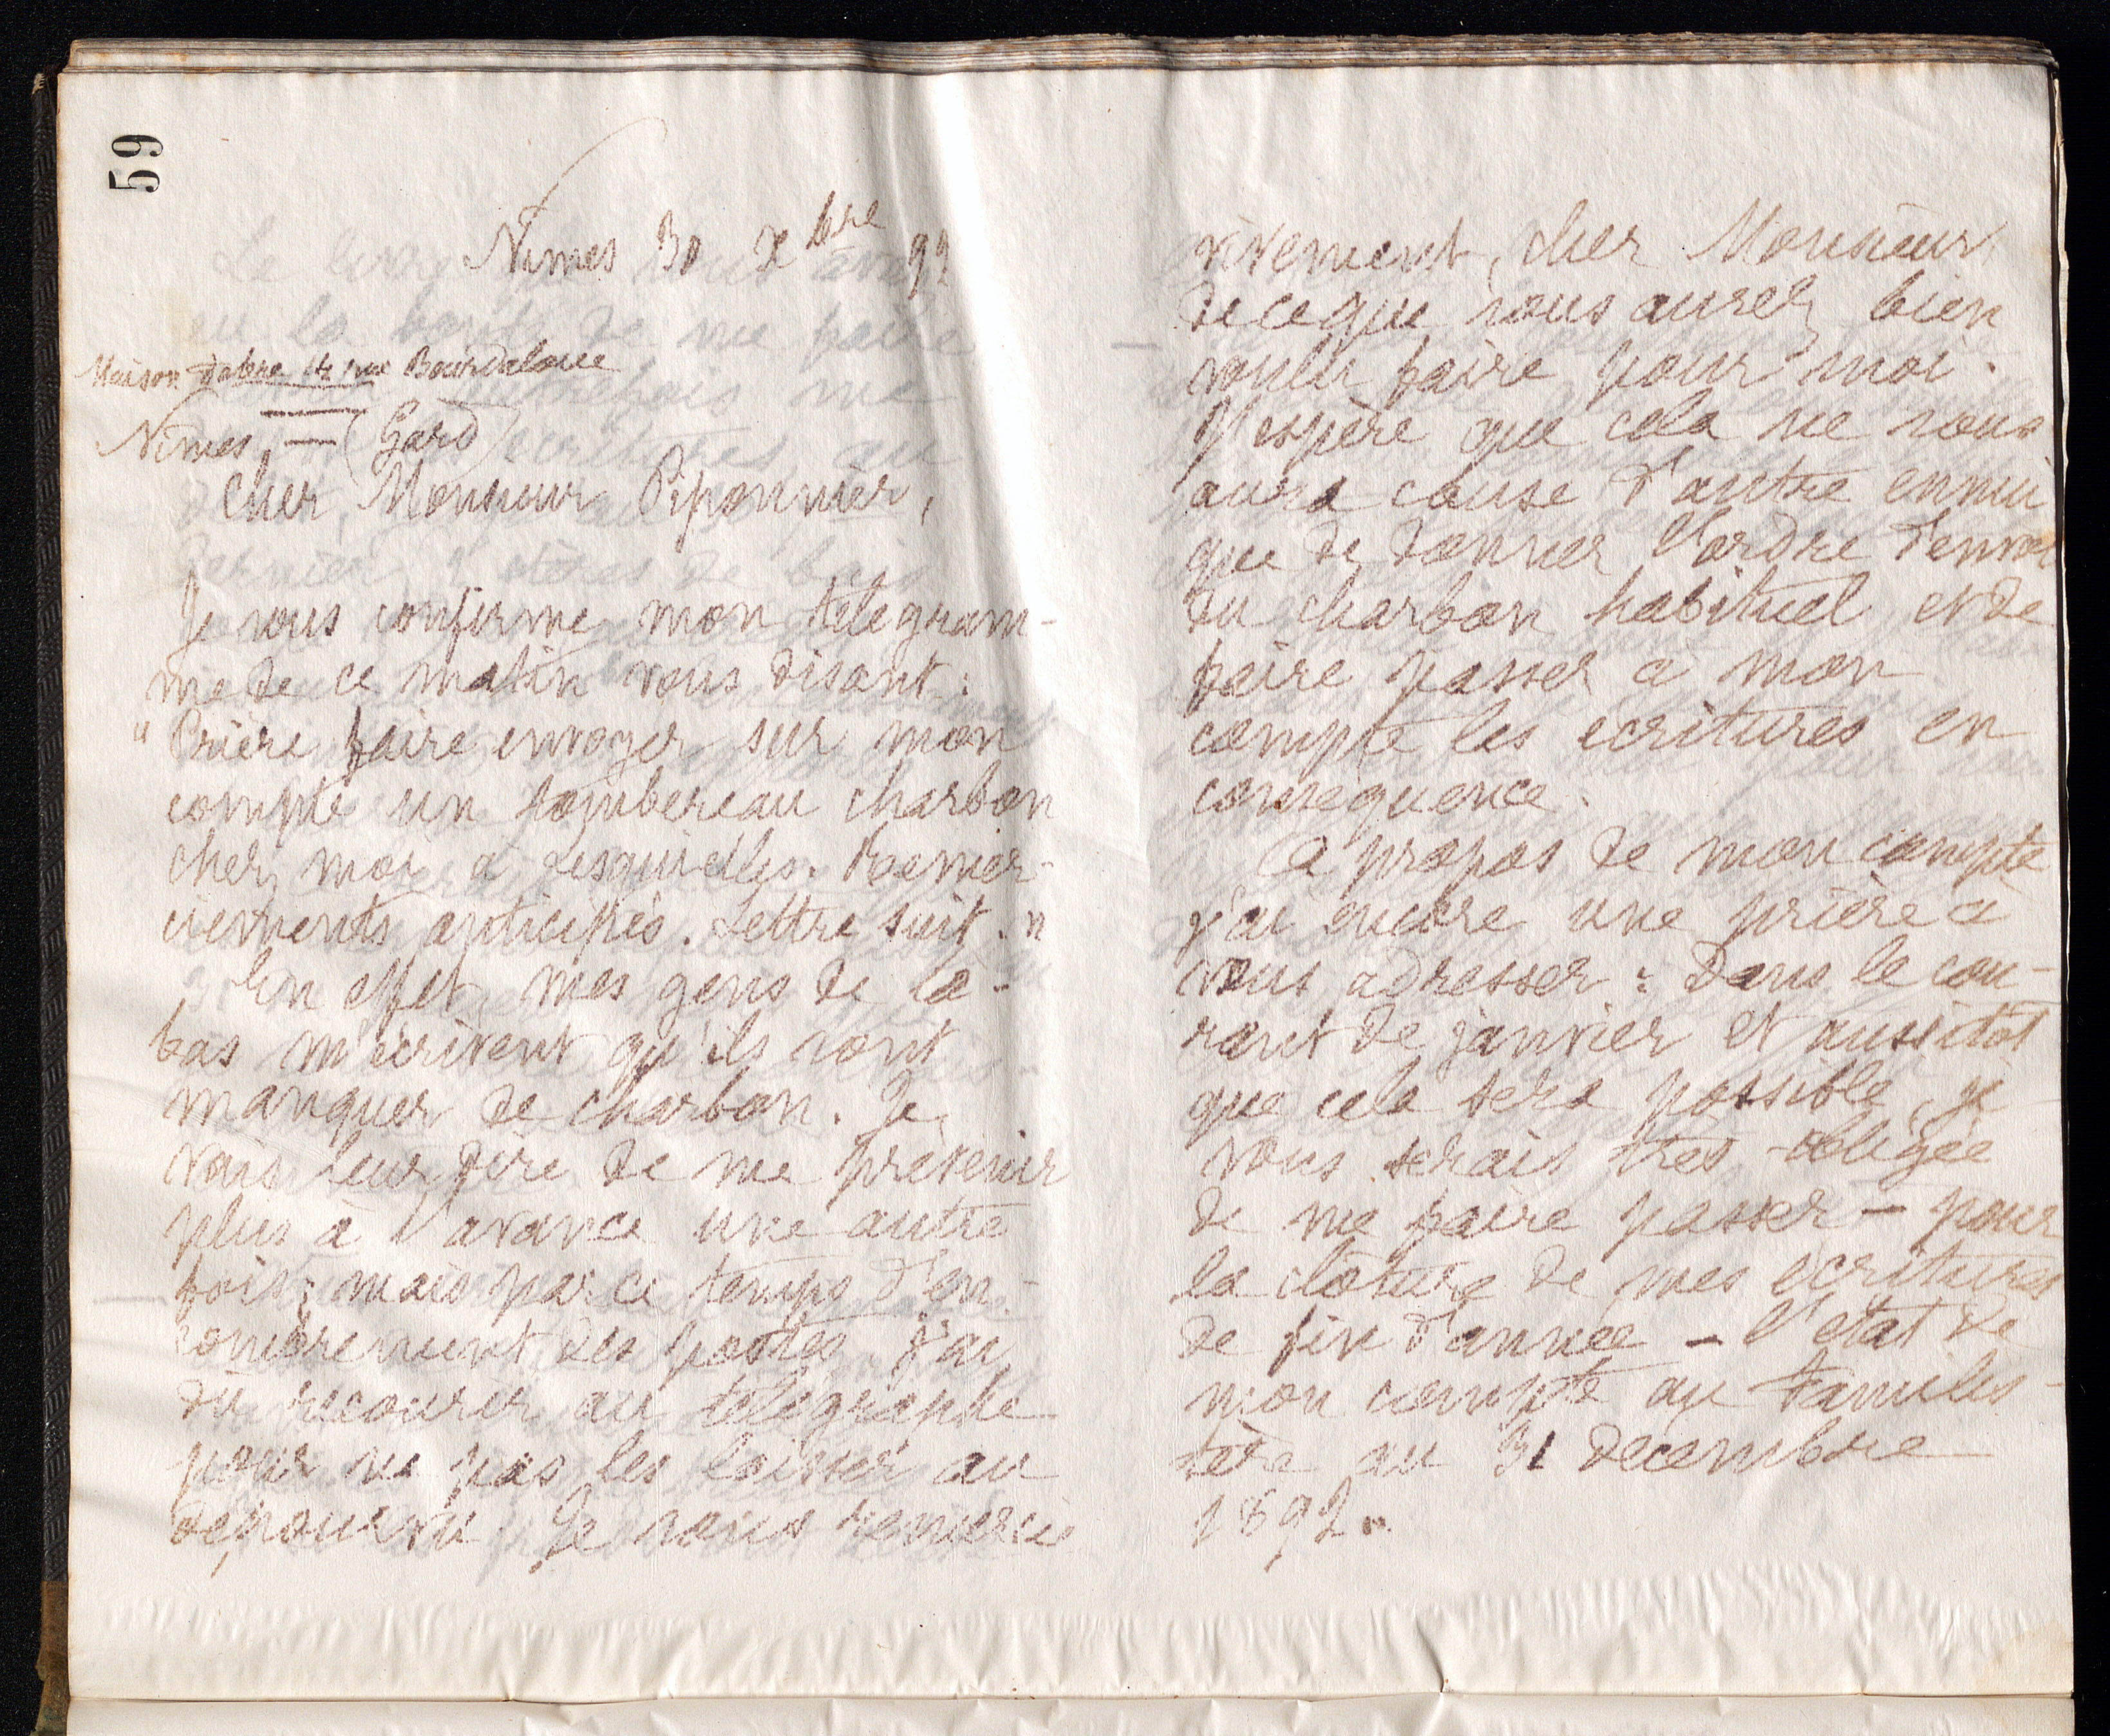 59
Nîmes 30 Xbre 92
Maison Fabre 14 rue Bourdaloue
Nîmes, — (Gard)
Cher Monsieur Piponnier,
Je vous confirme mon télégram-
me de ce matin vous disant :
" Prière faire envoyer sur mon
compte un tombereau charbon
chez moi à Lesquielles. Remer-
ciements anticipés. Lettre suit. "
En effet, mes gens de là-
bas m'écrivent qu'ils vont
manquer de charbon. Je
vais leur dire de me prévenir
plus à l'avance une autre
fois ; mais par ce temps d'en-
combrement des postes j'ai
dû recourir au télégraphe
pour ne pas les laisser au
dépourvu. Je vous remercie
vivement, cher Monsieur
de ce que vous aurez bien
voulu faire pour moi.
J'espère que cela ne vous
aura causé d'autre ennui
que de donner l'ordre d'envoi
du charbon habituel et de
faire passer à mon
compte les écritures en
conséquence.
A propos de mon compte
j'ai encore une prière à
vous adresser : Dans le cou-
rant de janvier et aussitôt
que cela sera possible, je
vous serais très obligée
de me faire passer — pour
la clôture de mes écritures
de fin d'année — l'état de
mon compte au Familis-
tère au 31 décembre
1892.